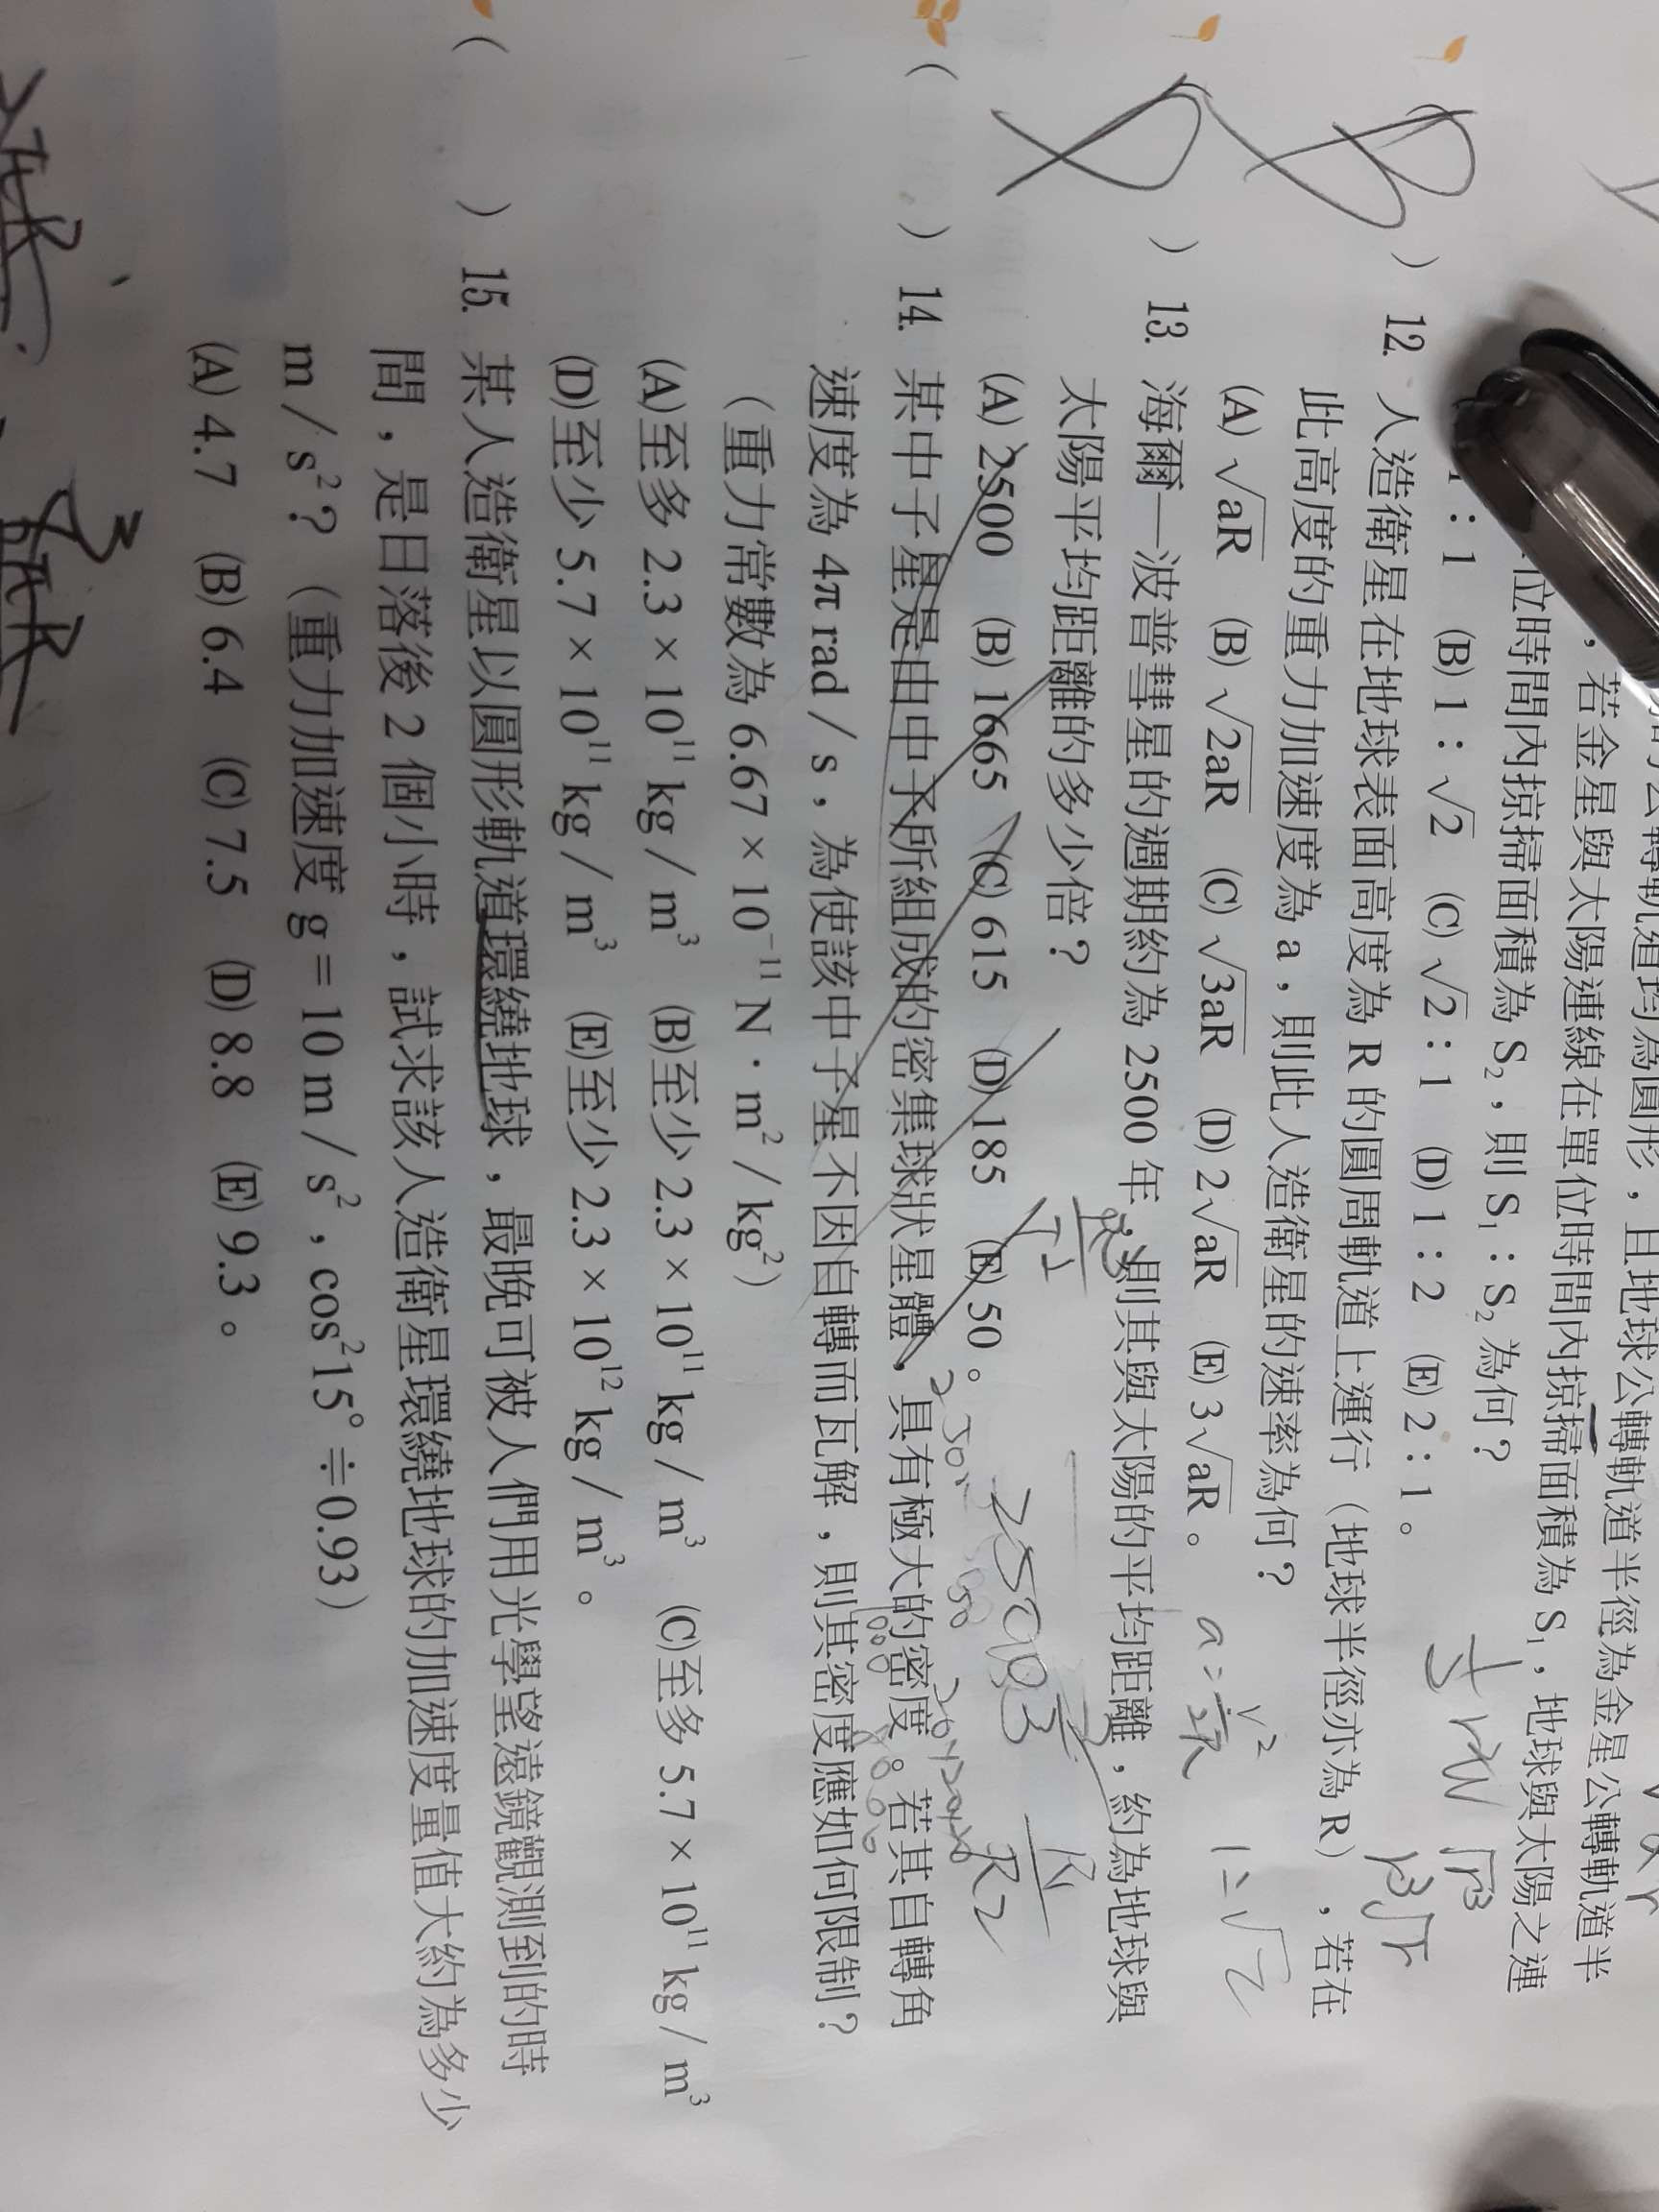 ，若金星與太陽連線在單位時間內掠掃面積為 S₁，地球與太陽之連
位時間內掠掃面積為 S₂，則 S₁：S₂ 為何？
1：1 (B) 1：√2 (C) √2：1 (D) 1：2 (E) 2：1。
) 12. 人造衛星在地球表面高度為 R 的圓周軌道上運行（地球半徑亦為 R），若在
此高度的重力加速度為 a，則此人造衛星的速率為何？
(A) √aR (B) √2aR (C) √3aR (D) 2√aR (E) 3√aR。
a = v²/2R
) 13. 海爾一波普彗星的週期約為 2500 年，則其與太陽的平均距離，約為地球與
太陽平均距離的多少倍？
(A) 2500 (B) 1665 (C) 615 (D) 185 (E) 50。
( ) 14. 某中子星是由中子所組成的密集球狀星體，具有極大的密度。若其自轉角
速度為 4π rad／s，為使該中子星不因自轉而瓦解，則其密度應如何限制？
（重力常數為 6.67 × 10⁻¹¹ N．m²／kg²）
(A)至多 2.3 × 10¹¹ kg／m³ (B)至少 2.3 × 10¹¹ kg／m³ (C)至多 5.7 × 10¹¹ kg／m³
(D)至少 5.7 × 10¹¹ kg／m³ (E)至少 2.3 × 10¹² kg／m³。
( ) 15. 某人造衛星以圓形軌道環繞地球，最晚可被人們用光學望遠鏡觀測到的時
間，是日落後 2 個小時，試求該人造衛星環繞地球的加速度量值大約為多少
m／s²？（重力加速度 g = 10 m／s²，cos²15° ≑ 0.93）
(A) 4.7 (B) 6.4 (C) 7.5 (D) 8.8 (E) 9.3。